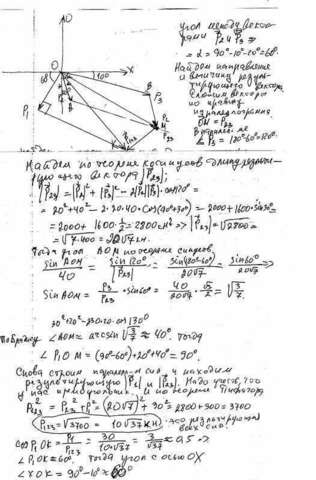 U
X
60°
100
B
P₁
P₃
M
P₂₃
угол между векто-
рами P₂ и P₃ =
= 2 = 90°-10°-20°=60°.
Найдем направление
и величину резуль-
тирующего вектора
Сложим векторы
по правилу
параллелограмма
OM = P₂₃
Найдем по теореме косинусов длину резуль-
тирующего вектора |P₂₃|;
|P₂₃|² = |P₂|² + |P₃|² - 2|P₂||P₃| cos120° =
= 20² + 40² - 2·20·40·cos(90°+30°) = 2000+1600·sin30° =
= 2000 + 1600·1/2 = 2800 кН² => |P₂₃| = √2800 =
= √7·400 = 20√7 кН.
Тогда угол AOM по теореме синусов
sin AOM / 40 = sin 120° / |P₂₃| = sin(180°-60°) / 20√7 = sin60° / 20√7 =>
sin AOM = P₃/P₂₃ · sin60° = 40/20√7 · √3/2 = √3/7
30²+20²-2·30·20·cos130°
∠AOM = arcsin √3/7 ≈ 40°. тогда
∠P₁OM = (90°-60°)+20°+40° = 90°.
Снова строим паралл-м сил и находим
результирующую |P₁| и |P₂₃|. Надо учесть, что
у нас прямоугольник и по теореме Пифагора
P²₁₂₃ = P²₂₃ + P₁² = (20√7)² + 30² = 2800+900=3700
P₁₂₃ = √3700 = 10√37 кН - это результирующая
всех сил.
cos P₁OK = P₁/P₁₂₃ = 30/10√37 = 3/√37 ≈ 0,5 =>
∠P₁OK ≈ 60°. Тогда угол с осью OX
∠XOK = 90°-10°≈ 60°